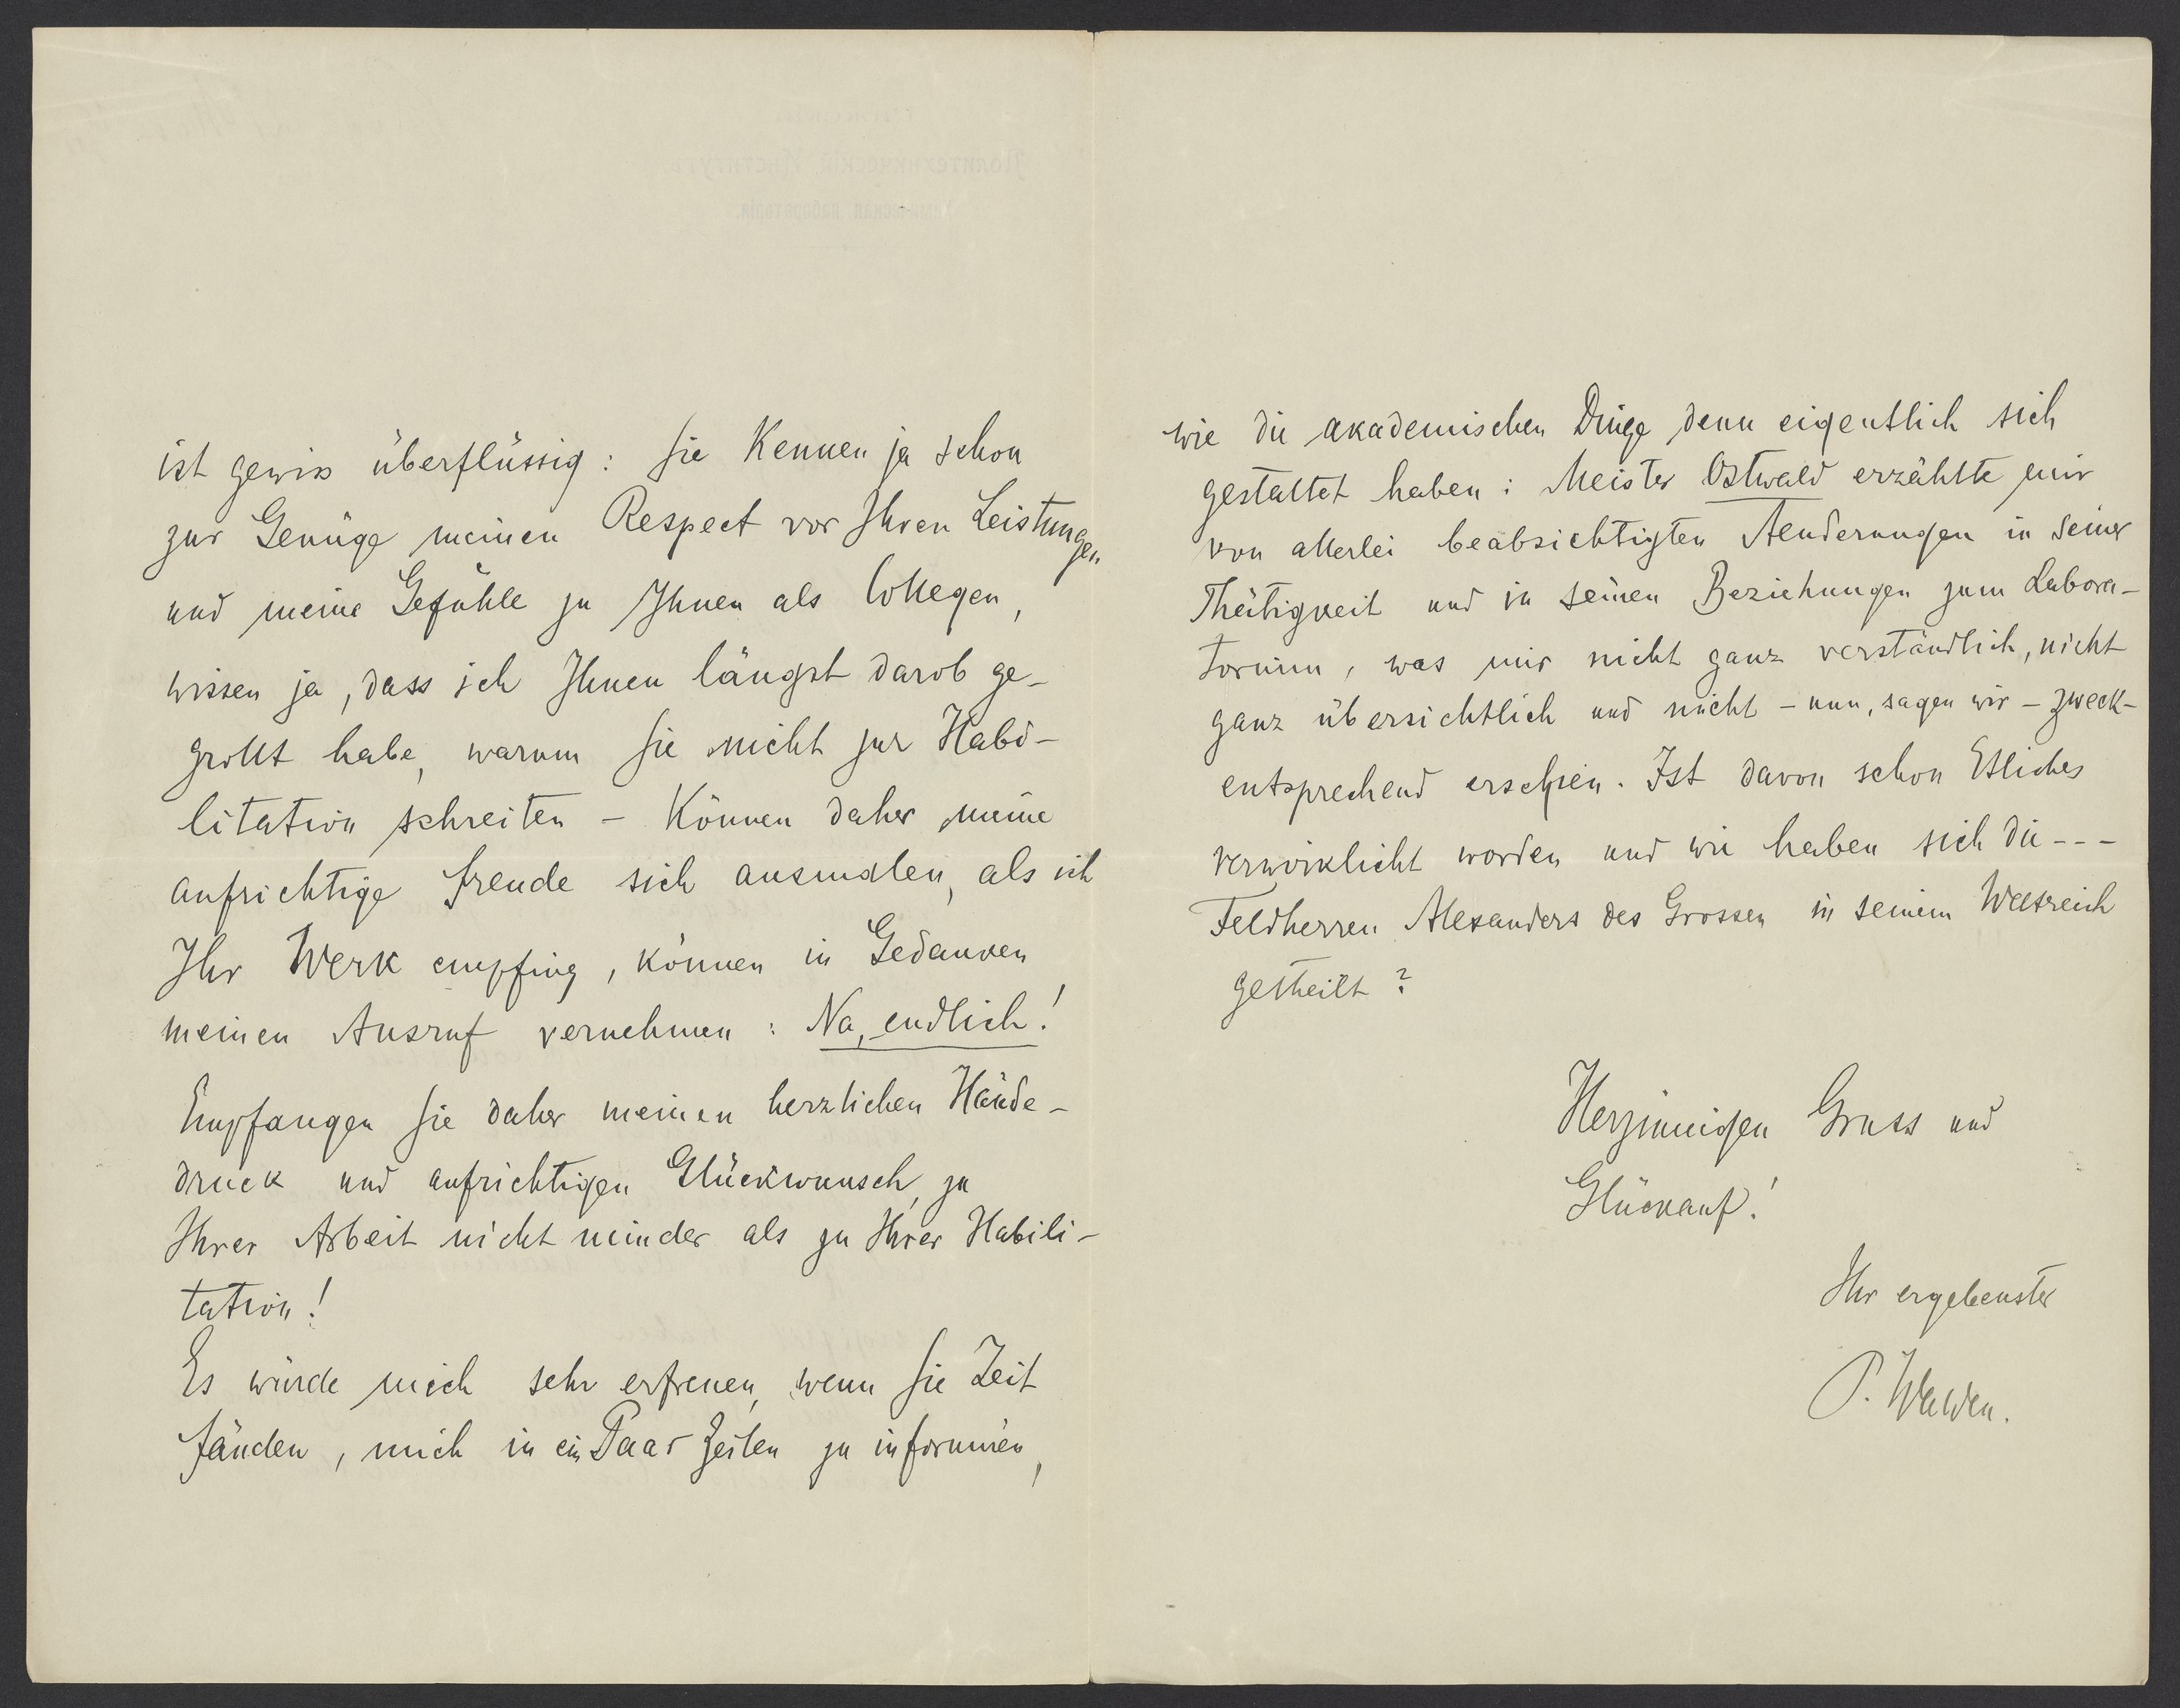 ist gewiss überflüssig: Sie kennen ja schon
zur Genüge meinen Respect vor Ihren Leistungen
und meine Gefühle zu Ihnen als Collegen,
wissen ja, dass ich Ihnen längst darob ge-
grollt habe, warum Sie nicht zur Habi-
litation schreiten – können daher meine
aufrichtige Freude sich ausmalen, als ich
Ihr Werk empfing, können in Gedanken
meinen Ausruf vernehmen: Na, endlich!
Empfangen Sie daher meinen herzlichen Hände-
druck und aufrichtigen Glückwunsch, zu
Ihrer Arbeit nicht minder als zu Ihrer Habili-
tation!
Es würde mich sehr erfreuen, wenn Sie Zeit
fänden, mich in ein Paar Zeilen zu informiren,
wie die akademischen Dinge denn eigentlich sich
gestaltet haben: Meister Ostwald erzählte mir
von allerlei beabsichtigten Aenderungen in seiner
Thätigkeit und in seinen Beziehungen zum Labora-
torium, was mir nicht ganz verständlich, nicht
ganz übersichtlich und nicht – nun, sagen wir – zweck-
entsprechend erschien. Ist davon schon Etliches
verwirklicht worden und wie haben sich die - - -
Feldherren Alexanders des Grossen in seinem Weltreich
getheilt?
Herzinnigen Gruss und
Glückauf!
Ihr ergebenster
P. Walden.